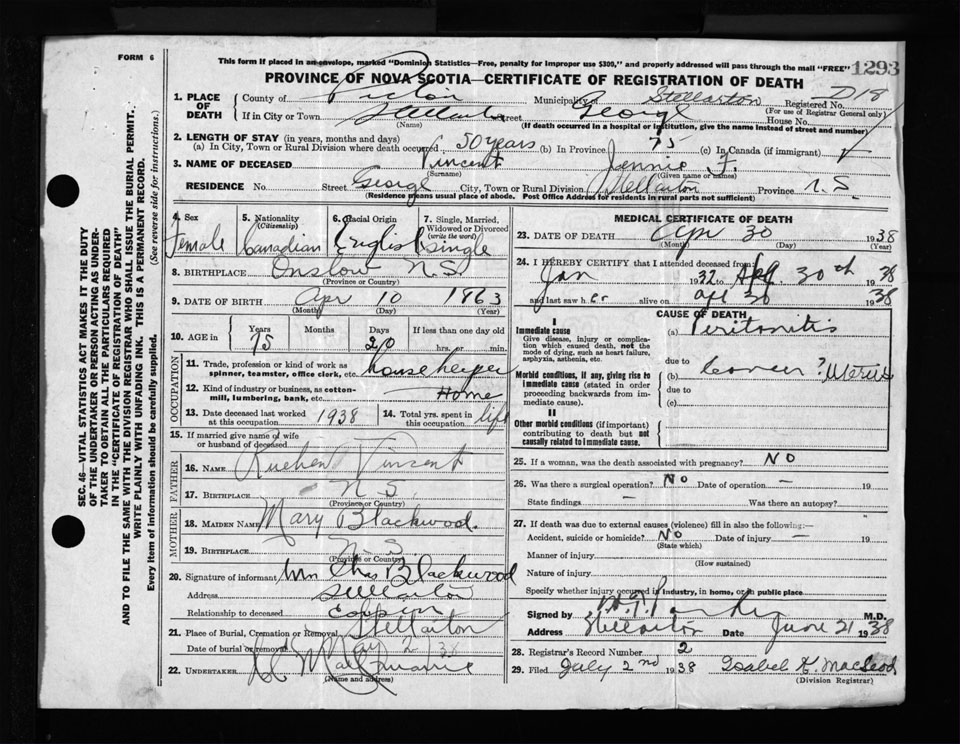 FORM 6
This form if placed in an envelope, marked "Dominion Statistics—Free, penalty for improper use $300," and properly addressed will pass through the mail "FREE"
1293
PROVINCE OF NOVA SCOTIA—CERTIFICATE OF REGISTRATION OF DEATH
1. PLACE OF DEATH
County of Pictou Municipality of Stellarton Registered No. D18
(For use of Registrar General only)
If in City or Town Stellarton Street George House No.
(Name) (If death occurred in a hospital or institution, give the name instead of street and number)
2. LENGTH OF STAY (in years, months and days)
(a) In City, Town or Rural Division where death occurred 50 years (b) In Province 75 (c) In Canada (if immigrant)
3. NAME OF DECEASED Vincent Jennie F.
(Surname) (Given name or names)
RESIDENCE No. Street George City, Town or Rural Division Stellarton Province N.S
(Residence means usual place of abode. Post Office Address for residents in rural parts not sufficient)
4. Sex Female
5. Nationality (Citizenship) Canadian
6. Racial Origin English
7. Single, Married, Widowed or Divorced (write the word) Single
8. BIRTHPLACE Onslow N.S.
(Province or Country)
9. DATE OF BIRTH Apr 10 1863
(Month) (Day) (Year)
10. AGE in Years 75 Months Days 20 If less than one day old
hrs. or min.
OCCUPATION
11. Trade, profession or kind of work as spinner, teamster, office clerk, etc. Housekeeper
12. Kind of industry or business, as cotton-mill, lumbering, bank, etc. — Home
13. Date deceased last worked at this occupation 1938
14. Total yrs. spent in this occupation life
15. If married give name of wife or husband of deceased
FATHER
16. NAME Rueben Vincent
17. BIRTHPLACE N S.
(Province or Country)
MOTHER
18. MAIDEN NAME Mary Blackwood.
19. BIRTHPLACE N. S
(Province or Country)
20. Signature of informant Mrs Chas Blackwood
Address Stellarton
Relationship to deceased Cousin
21. Place of Burial, Cremation or Removal Stellarton
Date of burial or removal May 2 /38
22. UNDERTAKER
(Name and address)
MEDICAL CERTIFICATE OF DEATH
23. DATE OF DEATH Apr 30 1938
(Month) (Day)
24. I HEREBY CERTIFY that I attended deceased from:
Jan 1932 to Apl. 30th 1938
and last saw her alive on Apl 30 1938
CAUSE OF DEATH
I
Immediate cause
Give disease, injury or complication which caused death, not the mode of dying, such as heart failure, asphyxia, asthenia, etc.
(a) Peritonitis
due to
Morbid conditions, if any, giving rise to immediate cause (stated in order proceeding backwards from immediate cause).
(b) Cancer ? Uterus
due to
(c)
II
Other morbid conditions (if important) contributing to death but not causally related to immediate cause.
25. If a woman, was the death associated with pregnancy? No
26. Was there a surgical operation? No Date of operation — 19
State findings — Was there an autopsy?
27. If death was due to external causes (violence) fill in also the following:—
Accident, suicide or homicide? No Date of injury — 19
(State which)
Manner of injury
(How sustained)
Nature of injury
Specify whether injury occurred in industry, in home, or in public place
Signed by M.D.
Address Stellarton Date June 21 1938
28. Registrar's Record Number 2
29. Filed July 2nd 1938 Isabel K. MacLeod
(Division Registrar)
SEC. 46—VITAL STATISTICS ACT MAKES IT THE DUTY
OF THE UNDERTAKER OR PERSON ACTING AS UNDER-
TAKER TO OBTAIN ALL THE PARTICULARS REQUIRED
IN THE "CERTIFICATE OF REGISTRATION OF DEATH"
AND TO FILE THE SAME WITH THE DIVISION REGISTRAR WHO SHALL ISSUE THE BURIAL PERMIT.
WRITE PLAINLY WITH UNFADING INK. THIS IS A PERMANENT RECORD.
Every item of information should be carefully supplied. (See reverse side for instructions.)